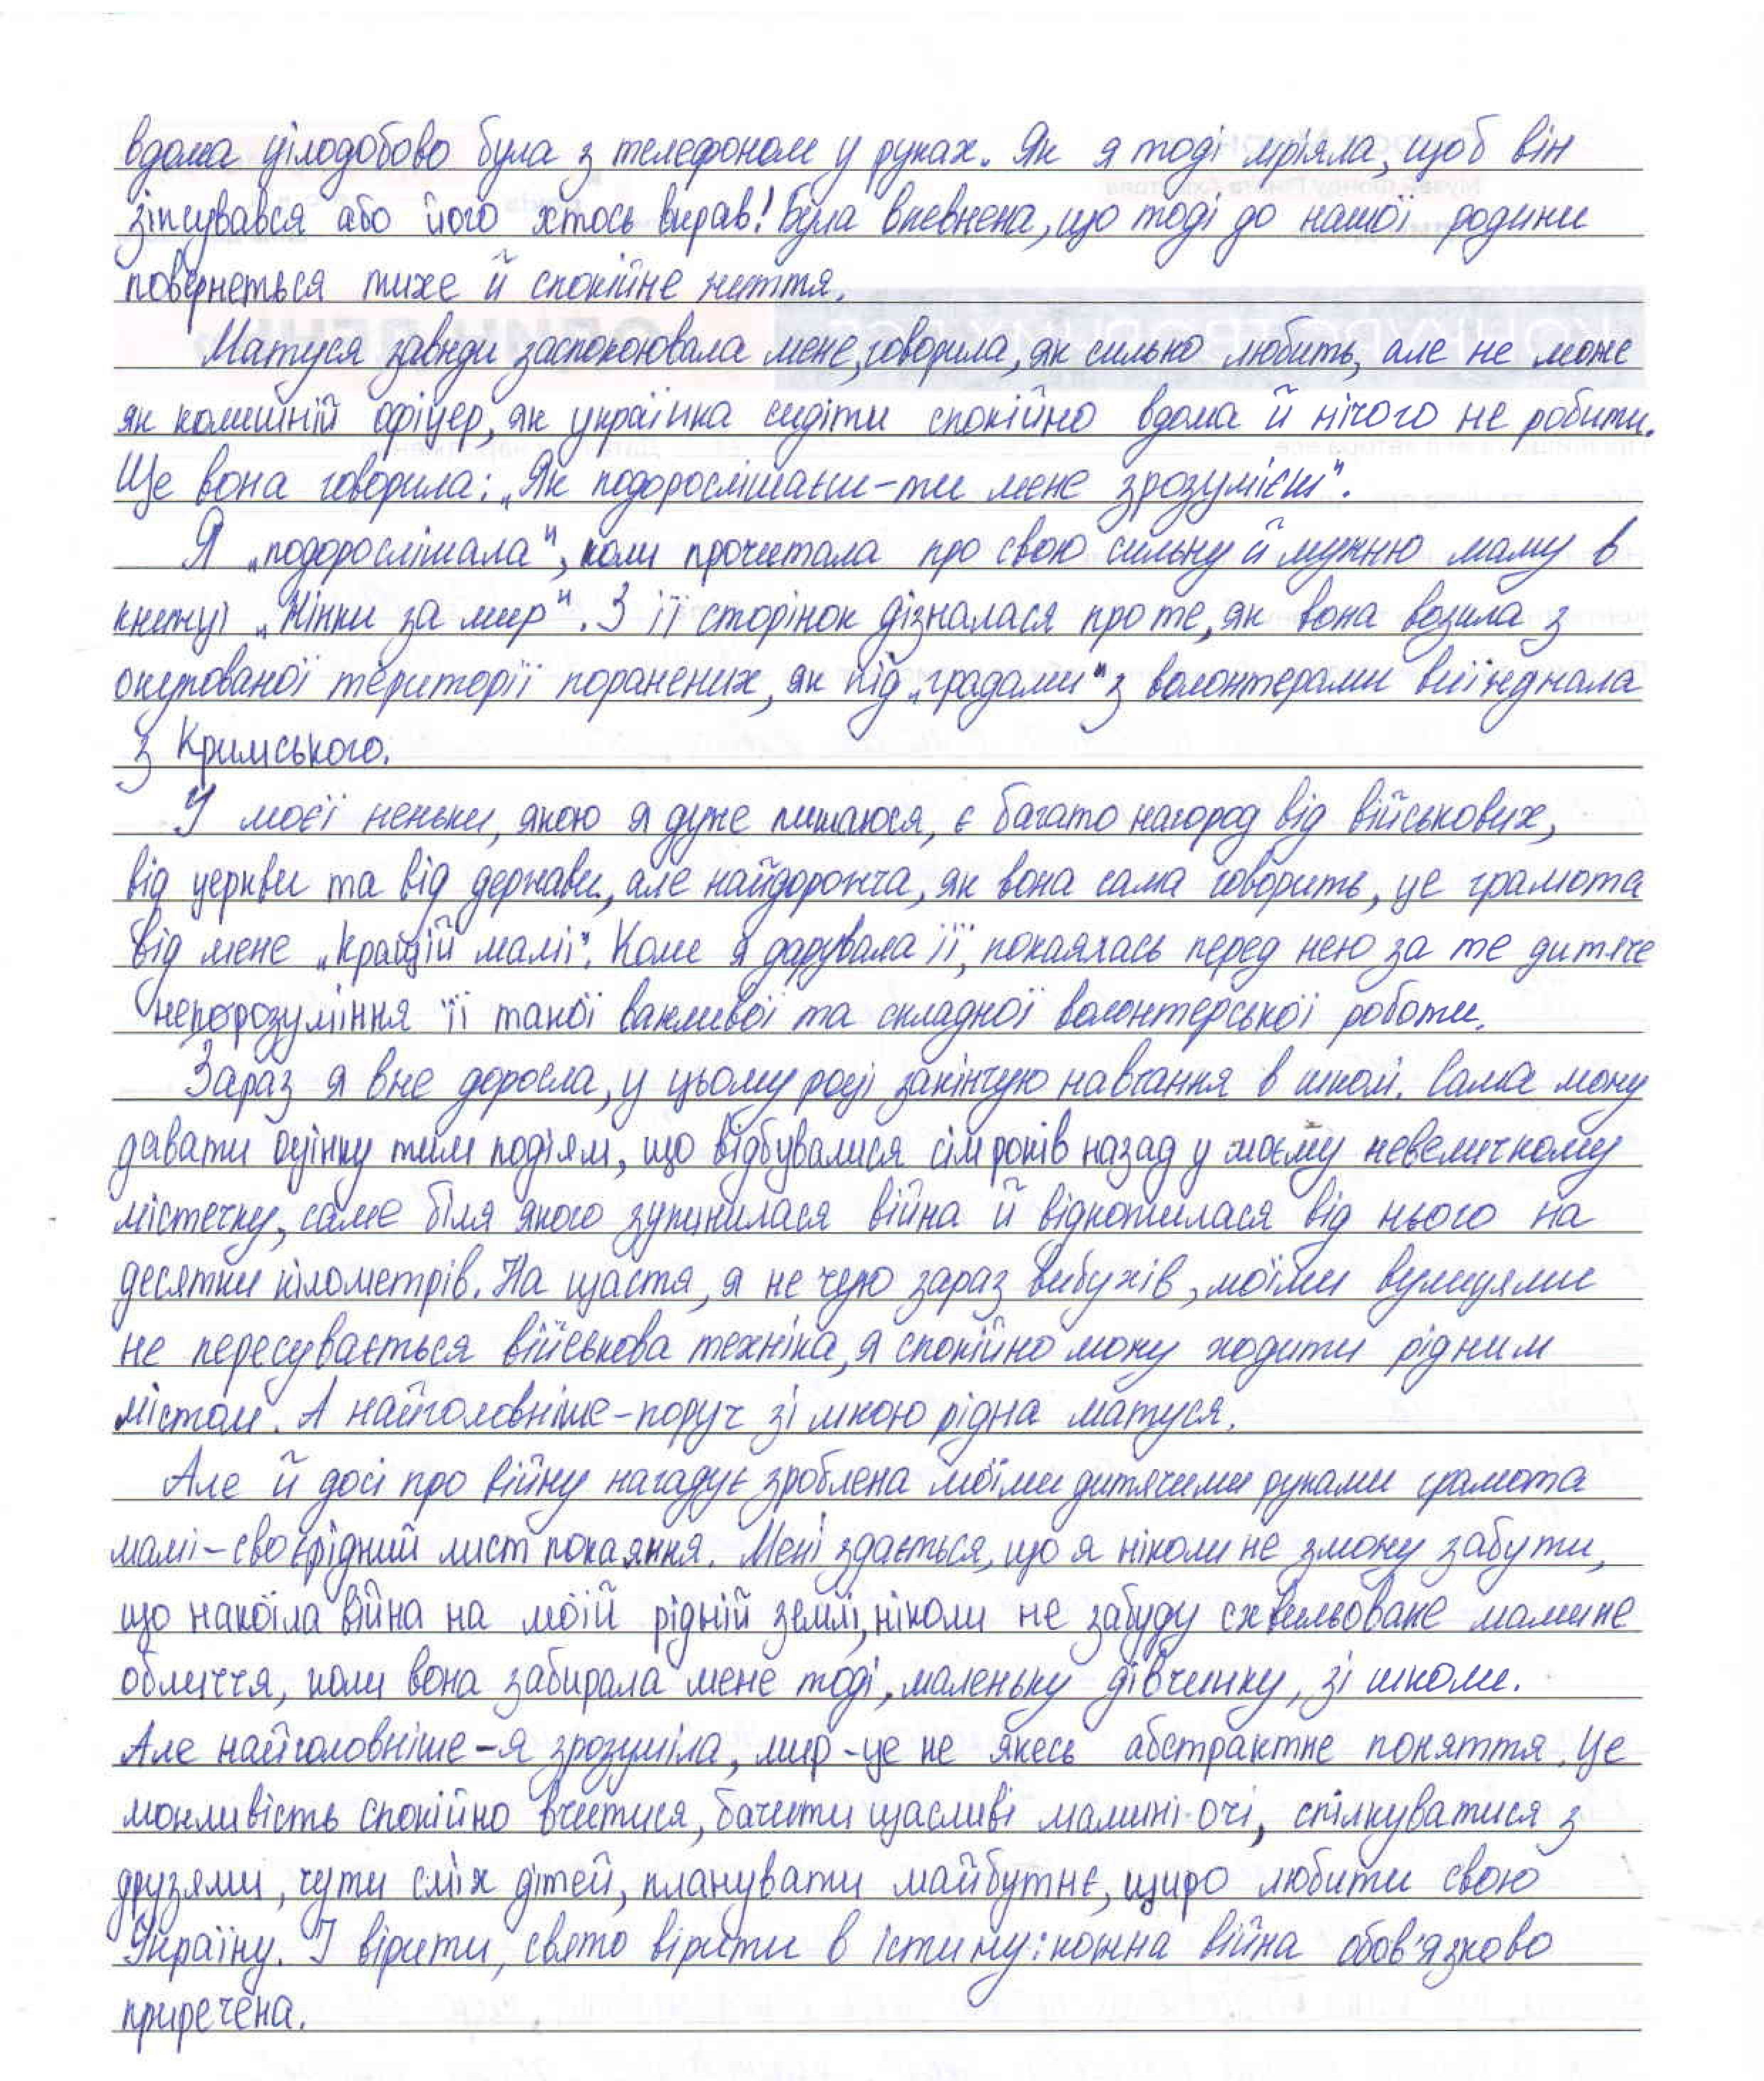 вдома цілодобово була з телефоном у руках. Як я тоді мріяла, щоб він
зіпсувався або його хтось вкрав! Була впевнена, що тоді до нашої родини
повернеться тихе й спокійне життя.
Матуся завжди заспокоювала мене, говорила, як сильно любить, але не може
як колишній офіцер, як українка сидіти спокійно вдома й нічого не робити.
Ще вона говорила: „Як подорослішаєш-ти мене зрозумієш".
Я „подорослішала", коли прочитала про свою сильну й мужню маму в
книжці „Жінки за мир". З її сторінок дізналася про те, як вона возила з
окупованої території поранених, як під „градами" з волонтерами виїжджала
з Кримського.
У моєї неньки, якою я дуже пишаюся, є багато нагород від військових,
від церкви та від держави, але найдорожча, як вона сама говорить, це грамота
від мене „Кращій мамі". Коли я дарувала її, покаялась перед нею за те дитяче
непорозуміння її такої важливої та складної волонтерської роботи.
Зараз я вже доросла, у цьому році закінчую навчання в школі. Сама можу
давати оцінку тим подіям, що відбувалися сім років назад у моєму невеличкому
містечку, саме біля якого зупинилася війна й відкотилася від нього на
десятки кілометрів. На щастя, я не чую зараз вибухів, моїми вулицями
не пересувається військова техніка, я спокійно можу ходити рідним
містом. А найголовніше-поруч зі мною рідна матуся.
Але й досі про війну нагадує зроблена моїми дитячими руками грамота
мамі-своєрідний лист покаяння. Мені здається, що я ніколи не зможу забути,
що накоїла війна на моїй рідній землі, ніколи не забуду схвильоване мамине
обличчя, коли вона забирала мене тоді, маленьку дівчинку, зі школи.
Але найголовніше-я зрозуміла, мир-це не якесь абстрактне поняття. Це
можливість спокійно вчитися, бачити щасливі мамині очі, спілкуватися з
друзями, чути сміх дітей, планувати майбутнє, щиро любити свою
Україну. І вірити, свято вірити в істину: кожна війна обов'язково
приречена.